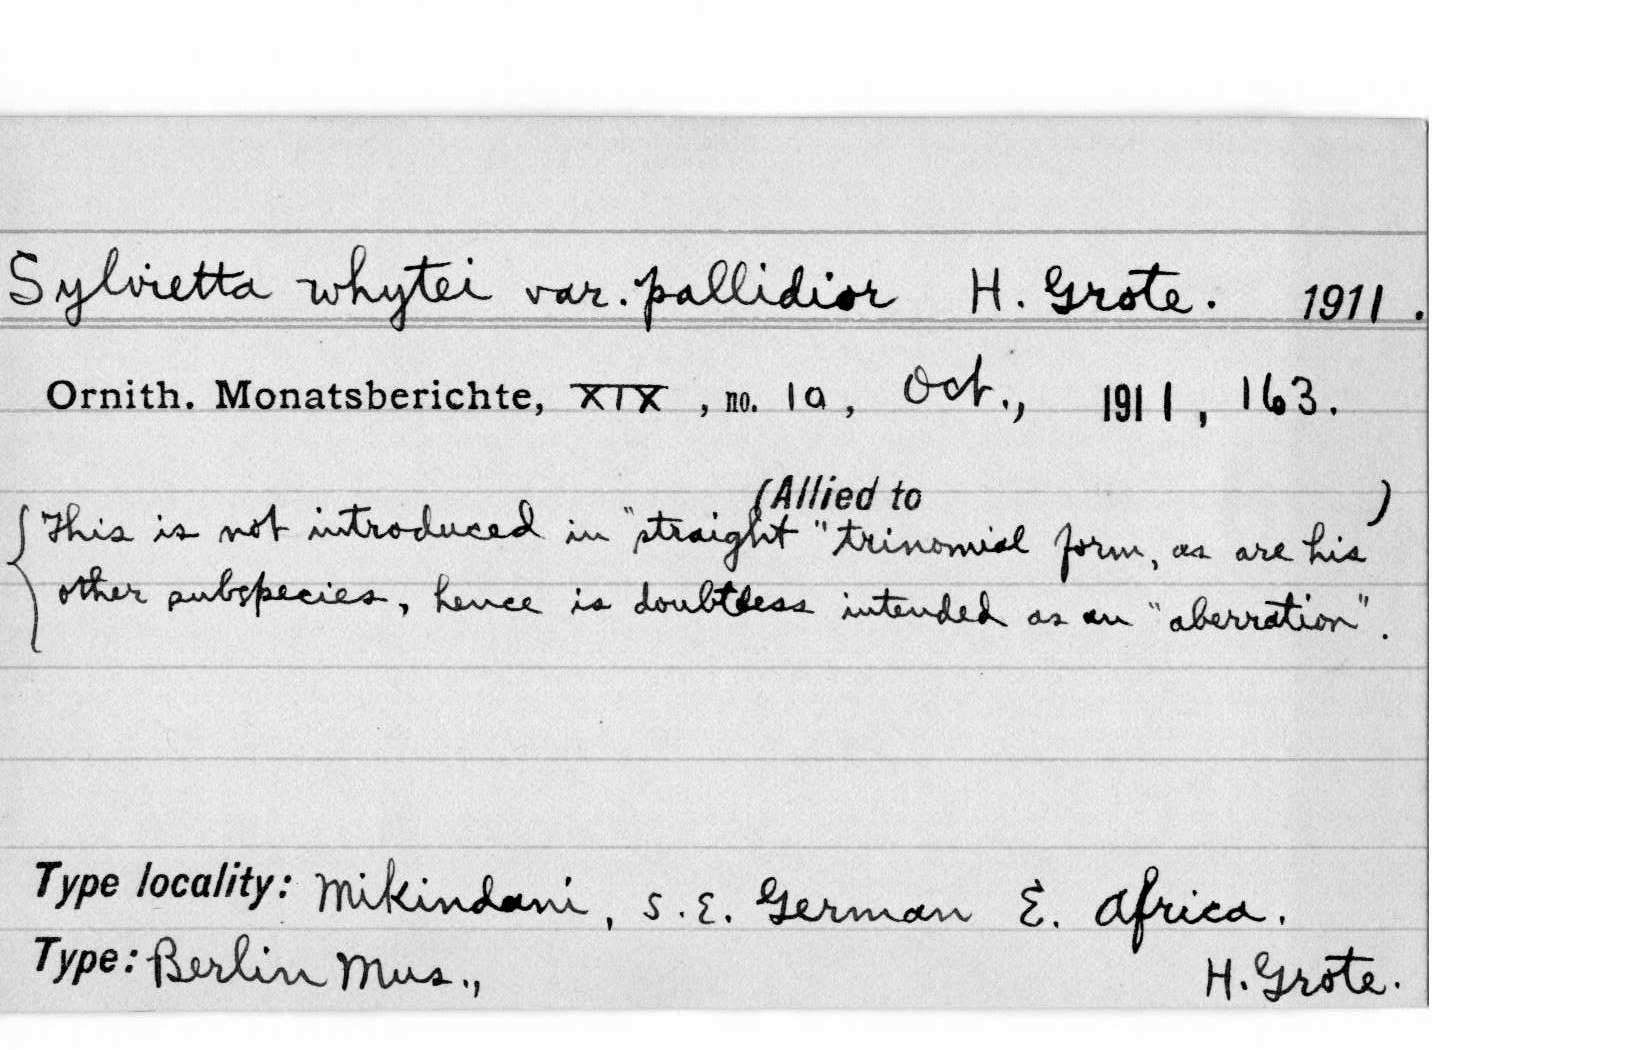 Sylvietta whytei var. pallidior H. Grote. 1911.
Ornith. Monatsberichte, XIX, no. 10, Oct., 1911, 163.
(Allied to )
{This is not introduced in "straight" trinomial form, as are his
other subspecies, hence is doubtless intended as an "aberration".
Type locality: Mikindani, S.E. German E. Africa.
Type: Berlin Mus., H. Grote.